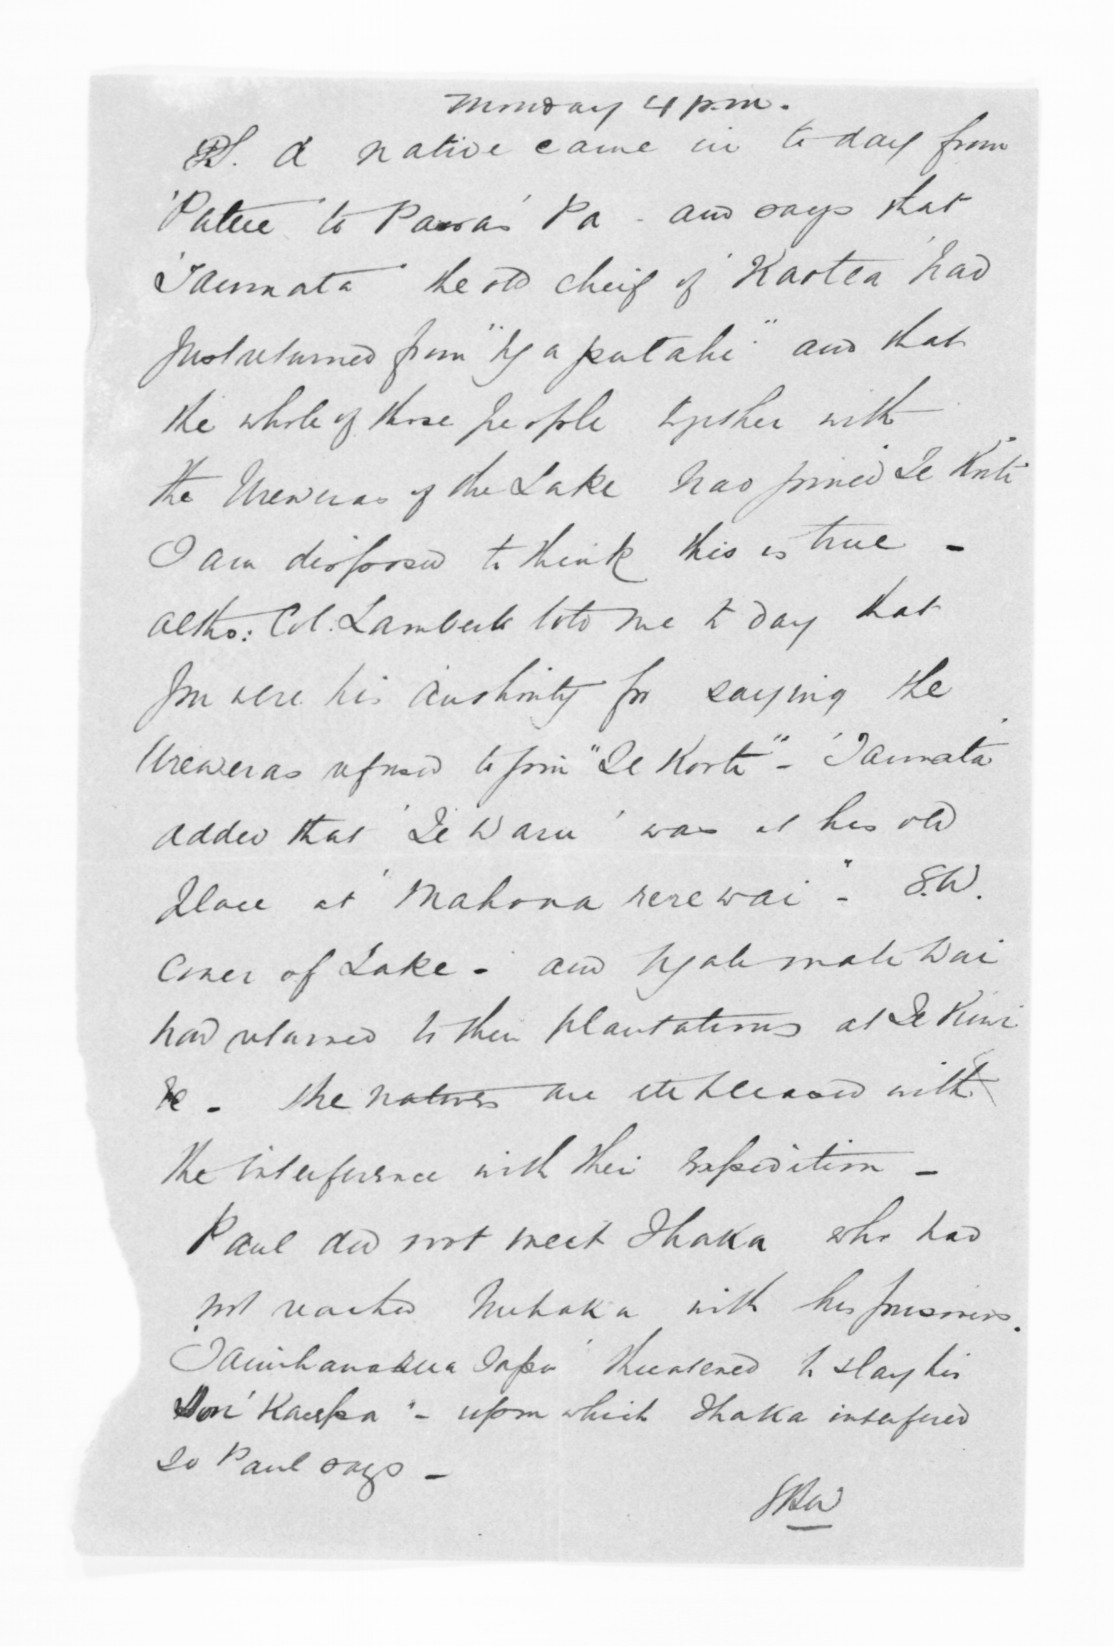 Monday 4 p.m.
P.S. A native came in to day from
'Patee' to Pawas' Pa - and says that
'Taumata' the old cheif of 'Kaotea' had
Just returned from "Ngaputahi" and that
the whole of those people together with
the Ureweras of the Lake had joined Te Koti
I am disposed to think this is true -
altho: Col. Lambert told me to day that
you were his authority for saying the
Ureweras refused to join "Te Korti" - 'Taumata'
added that 'Te Waru' was at his old
Place at 'Mahona rerewai" - S.W.
Coner of Lake - and Ngati mate Wai
had returned to their plantations at Te Kiwi
&c - The natives are ill pleased with
the interference with their expedition -
Paul did not meet Ihaka who had
not reached Nuhaka with his prisoners.
threatened to slay his
Son 'Kaipa" - upon which Ihaka interfered
So Paul says -